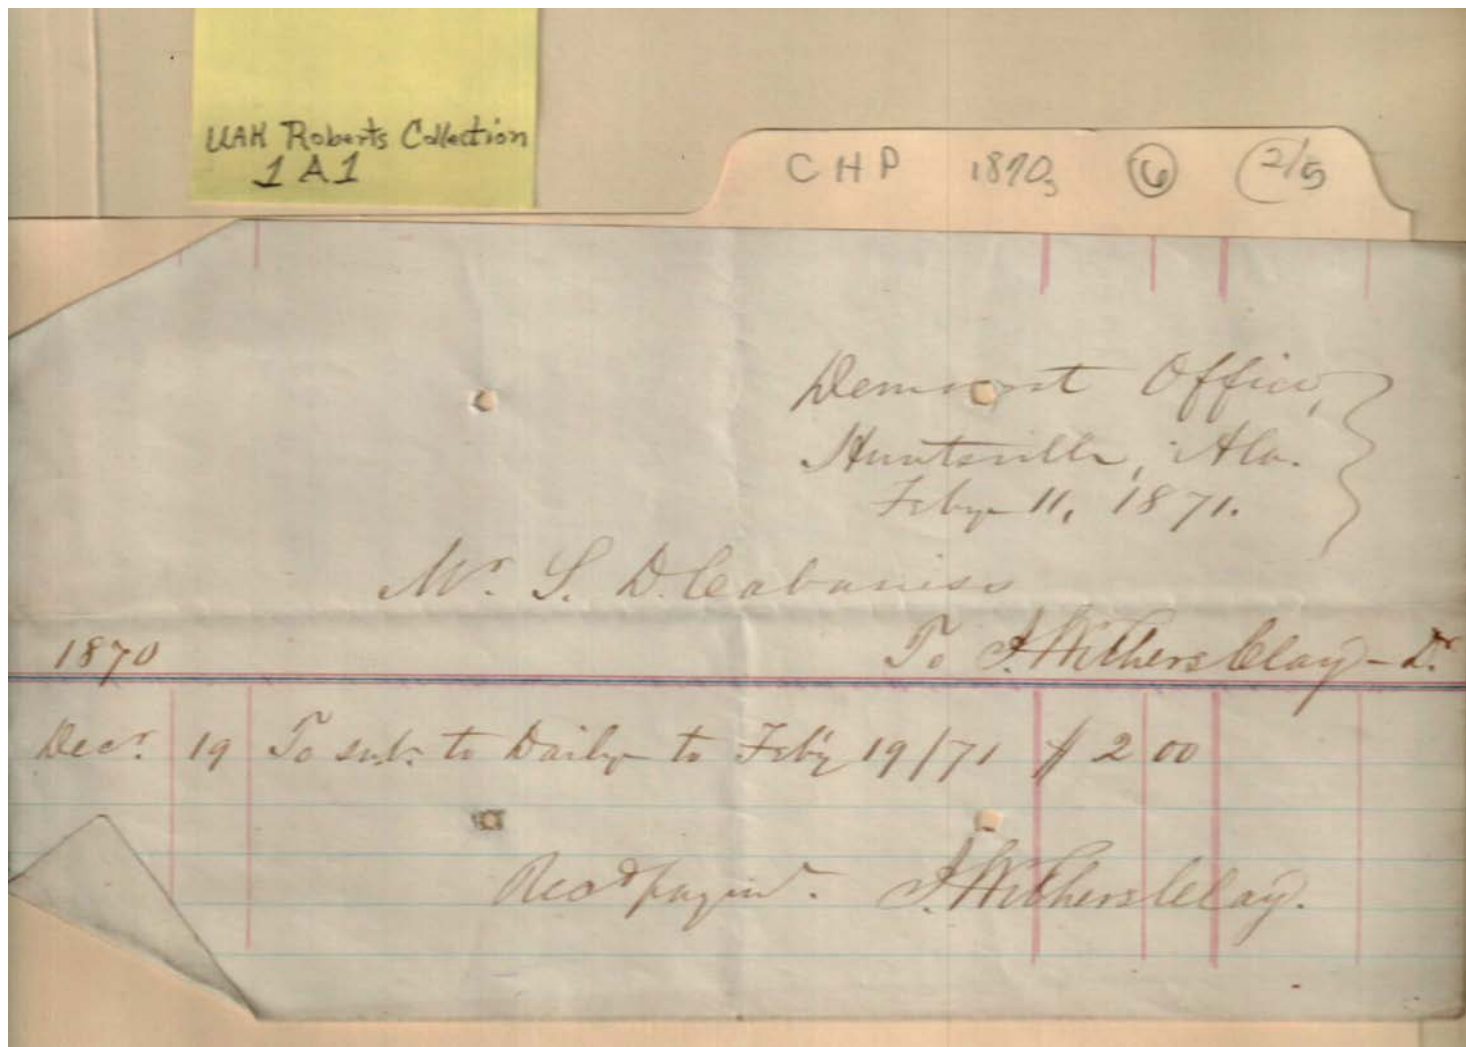 UAH Roberts Collection
1A1
CHP 1870s 6 2/5
Democrat Office,
Huntsville, Ala.
Feby 11, 1871.
Mr. S. D. Cabaniss
1870 To J. Withers Clay - Dr.
Decr. 19 To sub. to Daily to Feby 19/71 $ 2 00
Recd paymt. J. Withers Clay.